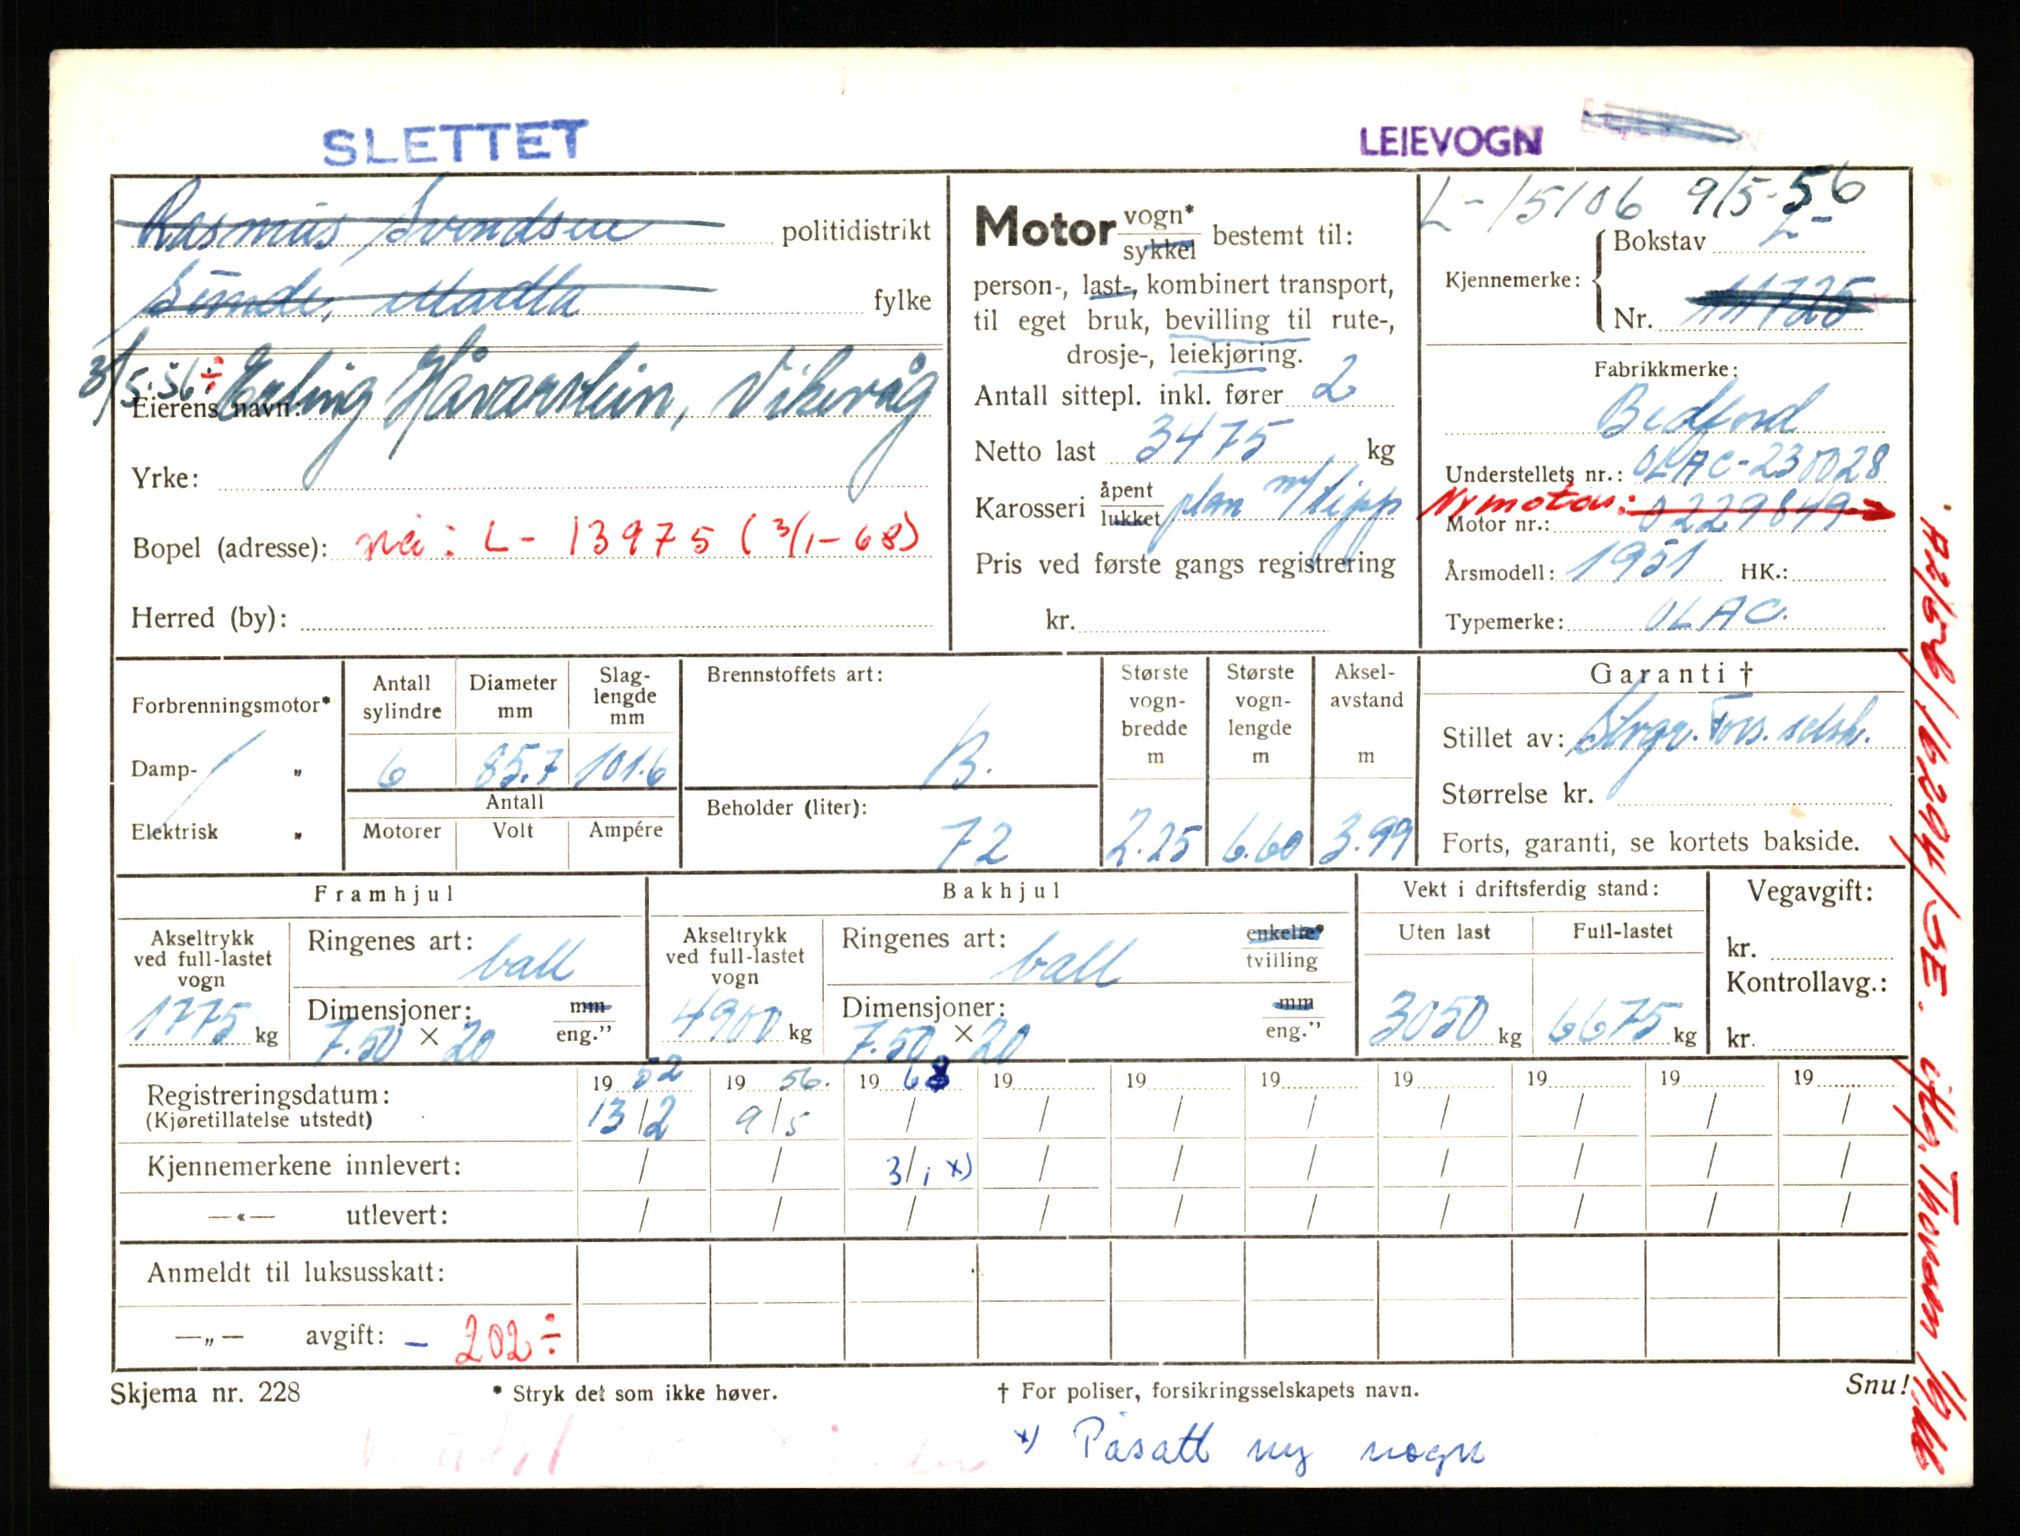 SLETTET
LEIEVOGN
Rasmus Svendsen politidistrikt
Sunde, Madla fylke
3/5-56 ÷ Erling Håvarstein, Vikevåg
Eierens navn:
Yrke:
Bopel (adresse): nei: L- 13975 (3/1-68)
Herred (by):
Motor vogn* sykkel bestemt til:
person-, last-, kombinert transport,
til eget bruk, bevilling til rute-,
drosje-, leiekjøring.
Antall sittepl. inkl. fører 2
Netto last 3475 kg
Karosseri åpent lukket plan m/tipp
Pris ved første gangs registrering
kr.
L-15106 9/5-56
Kjennemerke: Bokstav L-
Nr. 11725
Fabrikkmerke:
Bedford
Understellets nr.: OLAC-230028
Ny motor:
Motor nr.: 0229849
Årsmodell: 1951 HK.:
Typemerke: OLAC.
Forbrenningsmotor*
Damp- „
Elektrisk „
Antall sylindre 6
Diameter mm 85.7
Slaglengde mm 101.6
Antall
Motorer Volt Ampére
Brennstoffets art: B.
Beholder (liter): 72
Største vognbredde m 2.25
Største vognlengde m 6.60
Akselavstand m 3.99
Garanti †
Stillet av: Norges Fors. selsk.
Størrelse kr.
Forts, garanti, se kortets bakside.
Framhjul
Akseltrykk ved full-lastet vogn 1775 kg
Ringenes art: ball
Dimensjoner: 7.50 × 20 mm eng.”
Bakhjul
Akseltrykk ved full-lastet vogn 4900 kg
Ringenes art: ball enkelte* tvilling
Dimensjoner: 7.50 × 20 mm eng.”
Vekt i driftsferdig stand:
Uten last Full-lastet
3050 kg 6675 kg
Vegavgift:
kr.
Kontrollavg.:
kr.
Registreringsdatum: 19 52 19 56. 19 68 19 19 19 19 19 19 19
(Kjøretillatelse utstedt) 13/2 9/5 / / / / / / / /
Kjennemerkene innlevert: / / 3/1 x) / / / / / / /
—«— utlevert: / / / / / / / / / /
Anmeldt til luksusskatt:
—„— avgift: – 202 ÷
Skjema nr. 228
* Stryk det som ikke høver.
† For poliser, forsikringsselskapets navn.
Snu!
x) Påsatt ny vogn